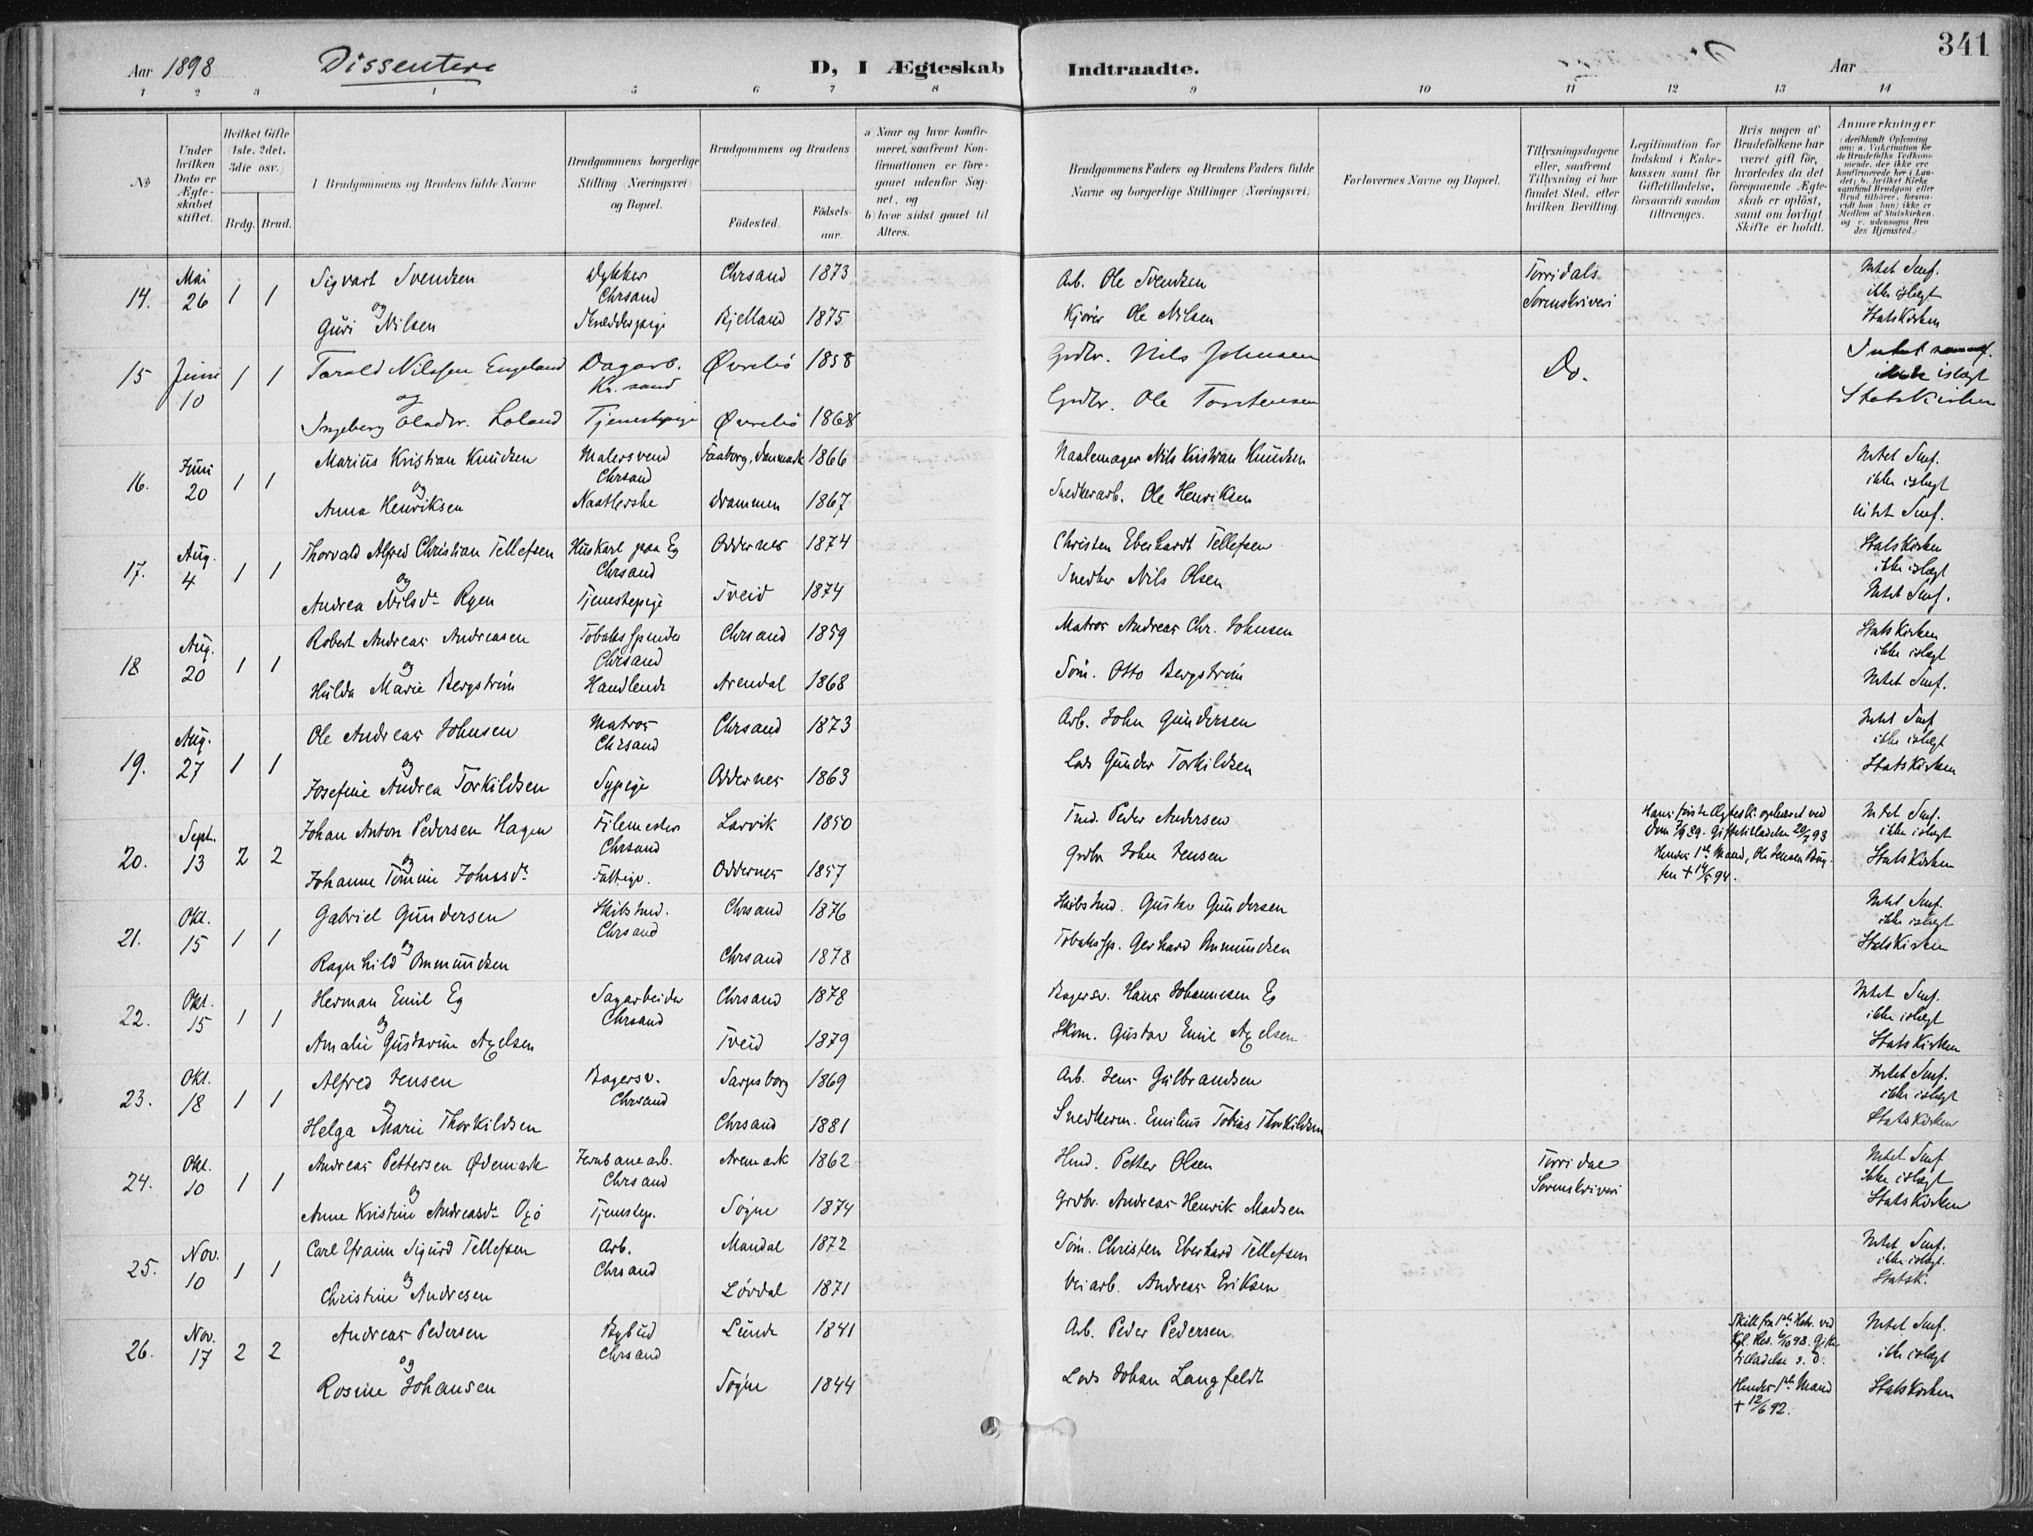 341
Aar 1898 Dissentere D, I Ægteskab Indtraadte. Aar
1 2 3 4 5 6 7 8 9 10 11 12 13 14
№
Under hvilken Dato er Ægteskabet stiftet.
Hvilket Gifte (1ste, 2det, 3die osv.)
Brdg. Brud.
Brudgommens og Brudens fulde Navne
Brudgommens borgerlige Stilling (Næringsvei) og Bopæl.
Brudgommens og Brudens
Födested. Födsels-aar.
a Naar og hvor konfirmeret, saafremt Konfirmationen er foregaaet udenfor Sognet, og
b hvor sidst gaaet til Alters.
Brudgommens Faders og Brudens Faders fulde Navne og borgerlige Stillinger (Næringsvei).
Forlovernes Navne og Bopæl.
Tillysningsdagene eller, saafremt Tillysning ei har fundet Sted, efter hvilken Bevilling.
Legitimation for Indskud i Enkekassen samt for Giftetilladelse, forsaavidt saadan tiltrænges.
Hvis nogen af Brudefolkene har været gift för, hvorledes da det foregaaende Ægteskab er oplöst, samt om lovligt Skifte er holdt.
Anmærkninger
14. Mai 26 1 1 Sigvart Svendsen Dykker Chrsand Chrsand 1873 Arb. Ole Svendsen Torridals Sorenskriveri Intet Samf. ikke islægt Statskirken
og Guri Nilsen Skrædderpige Bjelland 1875 Kjörer Ole Nilsen
15 Juni 10 1 1 Torald Nilssen Engeland Dagarb. Kr.sand Øvrebö 1858 Grdbr. Nils Johnsen Do. Intet samf. ikke islægt Statskirken
og Ingeborg Olsdtr. Loland Tjenestepige Øvrebö 1868 Grdbr. Ole Torstensen
16. Juni 20 1 1 Marius Kristian Knudsen Malersvend Chrsand Faaborg, Danmark 1866 Naalemager Nils Kristian Knudsen Intet Samf. ikke islægt
og Anna Henriksen Naatlerske Drammen 1867 Snedkerarb. Ole Henriksen intet Samf.
17. Aug. 4 1 1 Thorvald Alfred Christian Tellefsen Huskarl paa Eg Chrsand Oddernes 1874 Christen Eberhardt Tellefsen Statskirken ikke islægt
og Andrea Nilsdr. Ryen Tjenestepige Tveid 1874 Snedker Nils Olsen Intet Samf.
18 Aug. 20 1 1 Robert Andreas Andreasen Tobaksspinder Chrsand Chrsand 1859 Matros Andreas Chr. Johnsen Statskirken ikke islægt
og Hulda Marie Bergström Handlende Arendal 1868 Söm. Otto Bergström Intet Samf.
19. Aug. 27 1 1 Ole Andreas Johnsen Matros Chrsand Chrsand 1873 Arb. John Gundersen Intet Samf ikke islægt
og Josefine Andrea Torkildsen Sypige Oddernes 1863 Lods Gunder Torkildsen Statskirken
20. Sept. 13 2 2 Johan Anton Pedersen Hagen Filemester Chrsand Larvik 1850 Tmd. Peder Andersen Intet Samf. ikke islægt
og Johanne Tomine Johnsdr. Fattige. Oddernes 1857 Grdbr John Jensen Statskirken
Hans förste Ægtesk. ophævet ved Dom
Hendes 1ste Mand, Ole Jensen
21. Okt. 15 1 1 Gabriel Gundersen Skibstmd. Chrsand Chrsand 1876 Skibstmd. Gustav Gundersen Intet Samf. ikke islægt
og Ragnhild Ommundsen Chrsand 1878 Tobaksfp. Gerhard Ommundsen Statskirken
22. Okt. 15 1 1 Herman Emil Eg Sagarbeider Chrsand Chrsand 1878 Bagersv. Hans Johannesen Eg Intet Samf. ikke islægt
og Amalie Gustavine Axelsen Tveid 1879 Skom. Gustav Emil Axelsen Statskirken
23. Okt. 18 1 1 Alfred Jensen Bagersv. Chrsand Sarpsborg 1869 Arb. Jens Gulbrandsen Intet Samf. ikke islægt
og Helga Marie Thorkildsen Chrsand 1881 Snedkerm. Emilius Tobias Thorkildsen Statskirken
24. Okt. 10 1 1 Andreas Pettersen Ødemark Jernbanearb. Chrsand Aremark 1862 Hmd. Petter Olsen Torridal Sorenskriveri Intet Samf ikke islægt
og Anne Kristine Andreasdr. Oxö Tjenestep. Sögne 1874 Grdbr. Andreas Henrik Madsen Statskirken
25. Nov. 10 1 1 Carl Efraim Sigurd Tellefsen Arb. Chrsand Mandal 1872 Söm. Christen Eberhard Tellefsen Intet Samf. ikke islægt.
og Christine Andresen Lövdal 1871 Veiarb. Andreas Eriksen Statsk.
26. Nov. 17 2 2 Andreas Pedersen Bybud Chrsand Lunde 1841 Arb. Peder Pedersen Intet Samf. ikke islægt
og Rosine Johansen Sögne 1844 Lods Johan Langfeldt Statskirken
Skilt fra 1ste Hstr. ved Kgl. Res. 6/10 98. Giftetilladelse s. D.
Hendes 1ste Mand + 12/6 92.